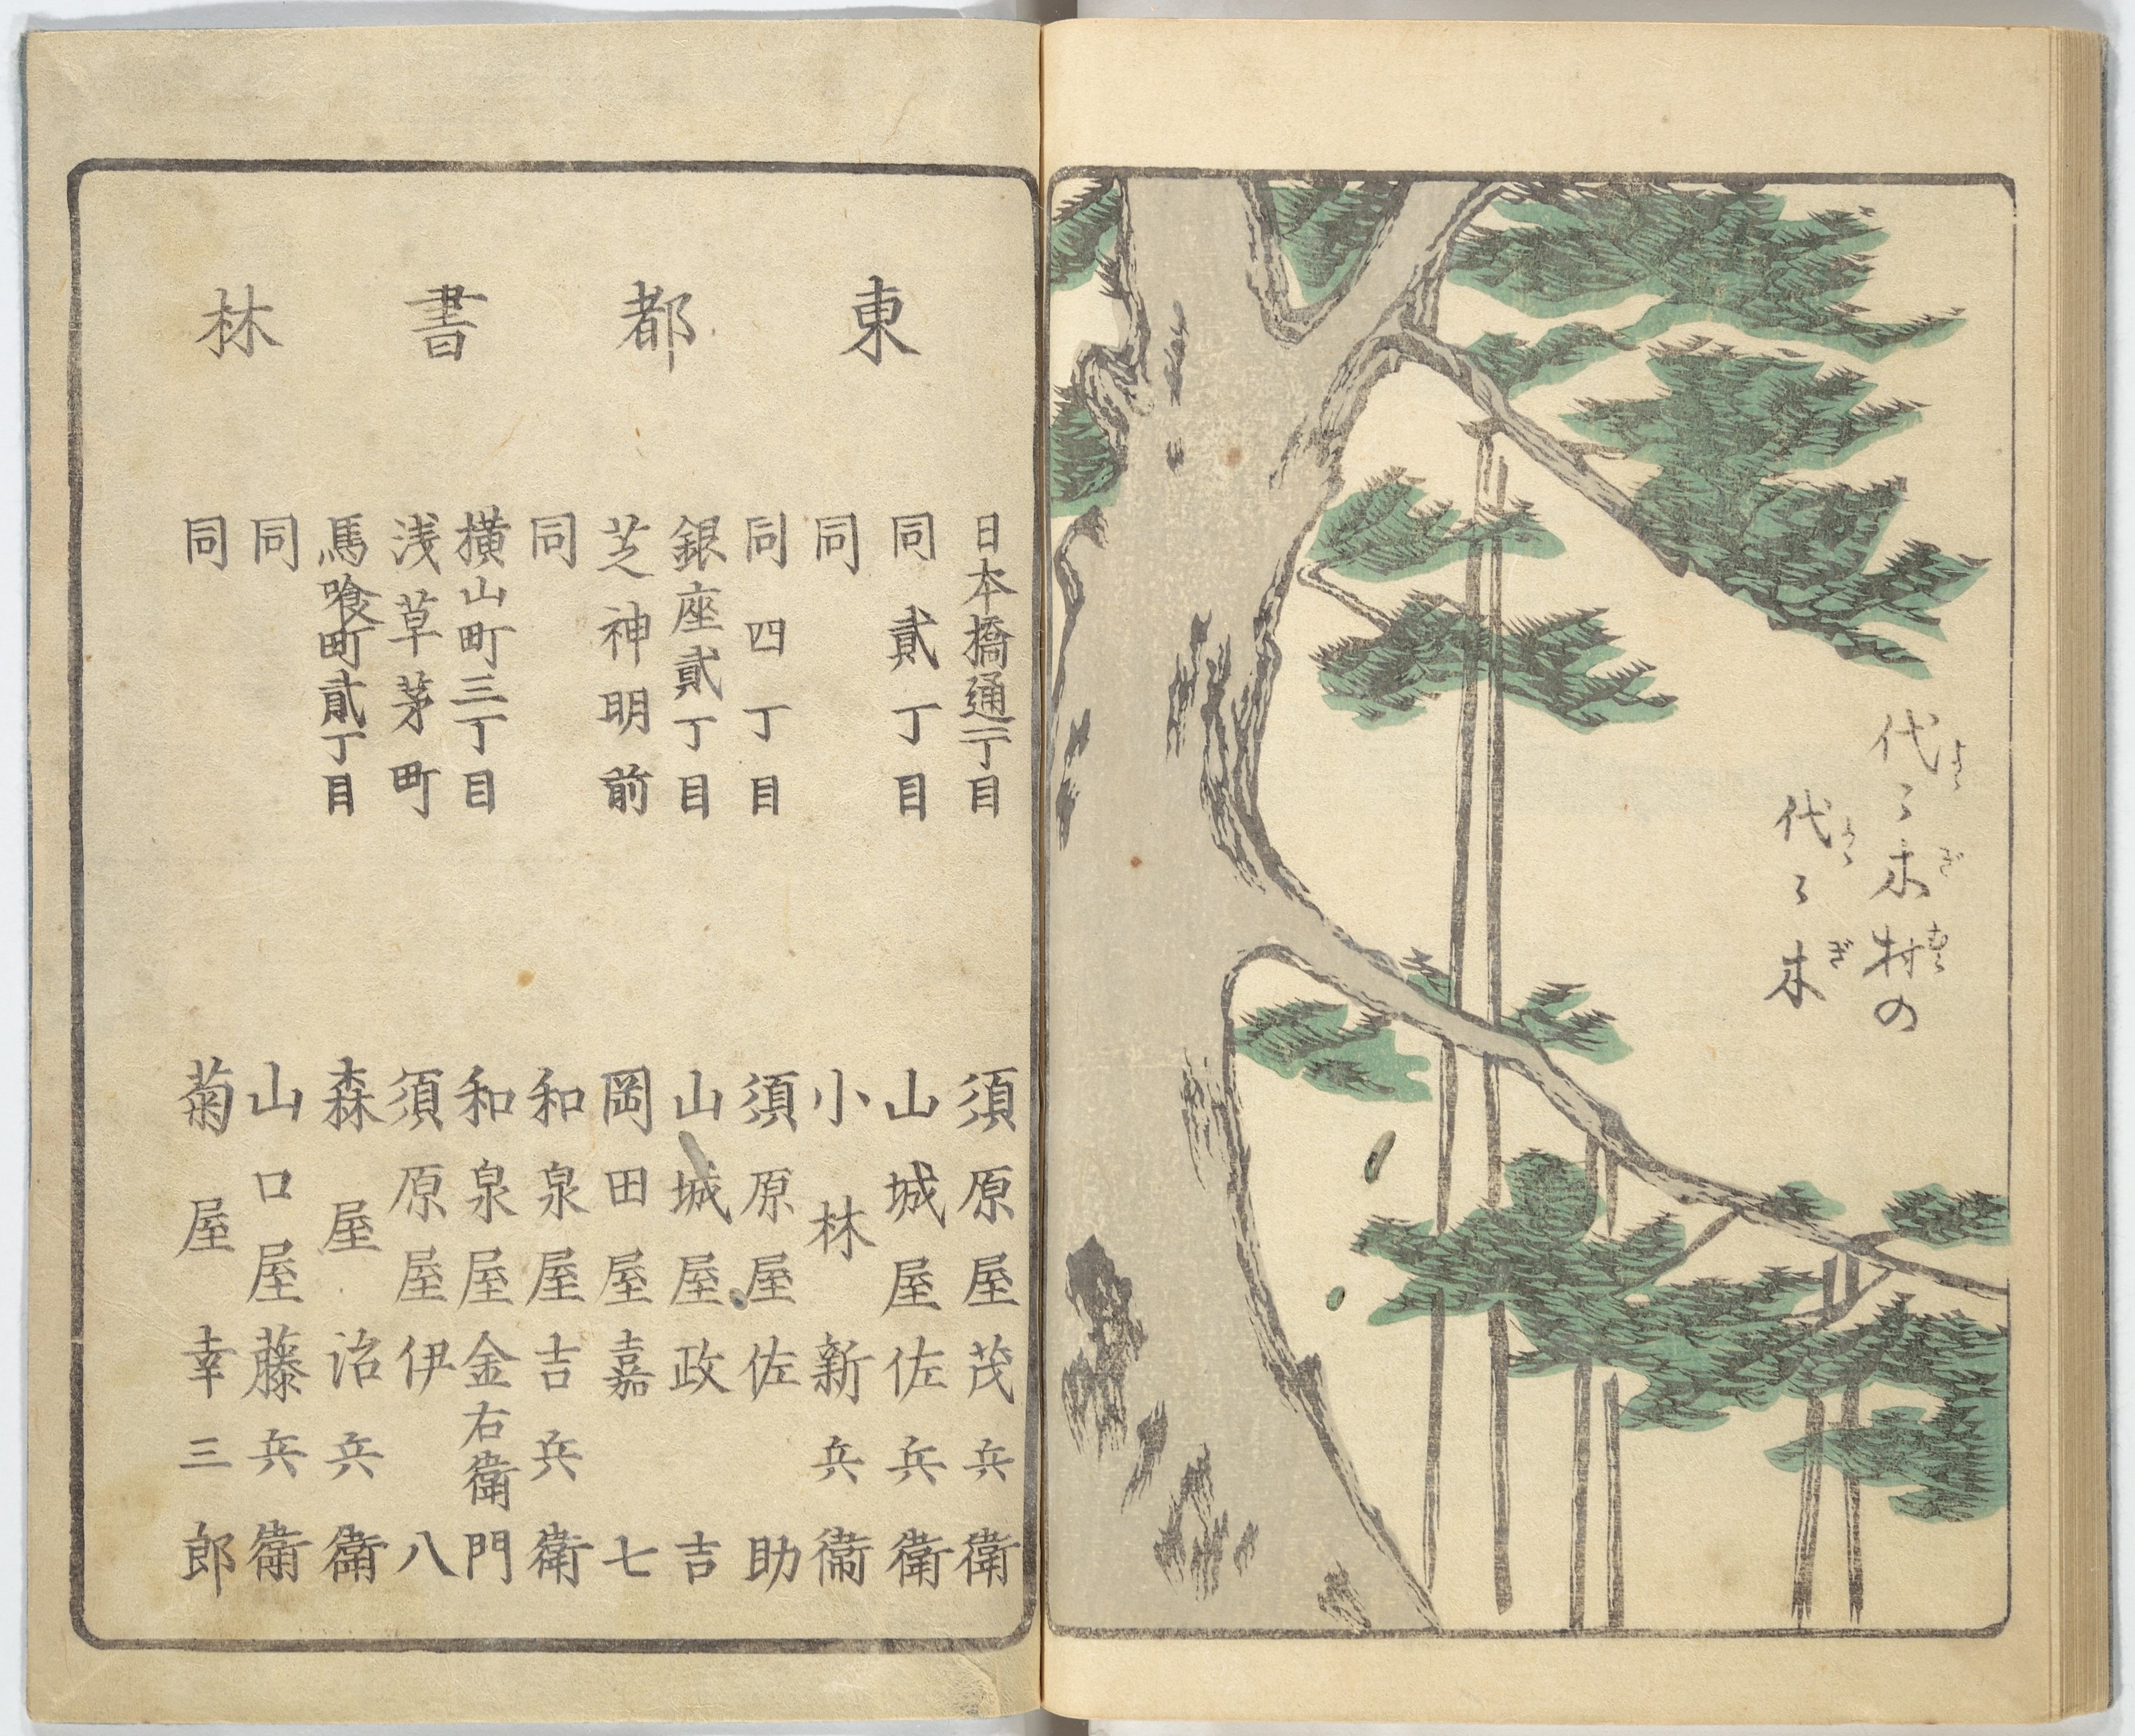 代々木村の
代々木
東都書林
日本橋通一丁目 須原屋茂兵衛
同貳丁目 山城屋佐兵衛
同 小林新兵衛
同四丁目 須原屋佐助
銀座貳丁目 山城屋政吉
芝神明前 岡田屋嘉七
同 和泉屋吉兵衛
横山町三丁目 和泉屋金右衛門
浅草茅町 須原屋伊八
馬喰町貳丁目 森屋治兵衛
同 山口屋藤兵衛
同 菊屋幸三郎